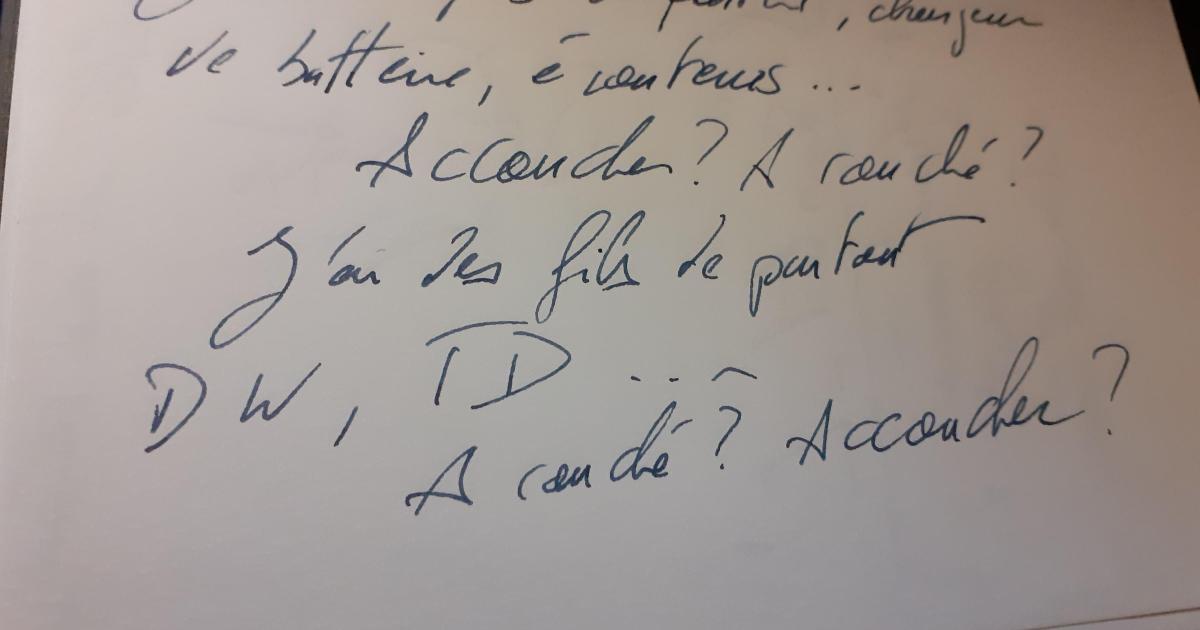 , chargeur
de batterie, écouteurs ...
Accoucher? A couché?
J'ai des fils de partout
DW, TD ...
A couché? Accoucher?